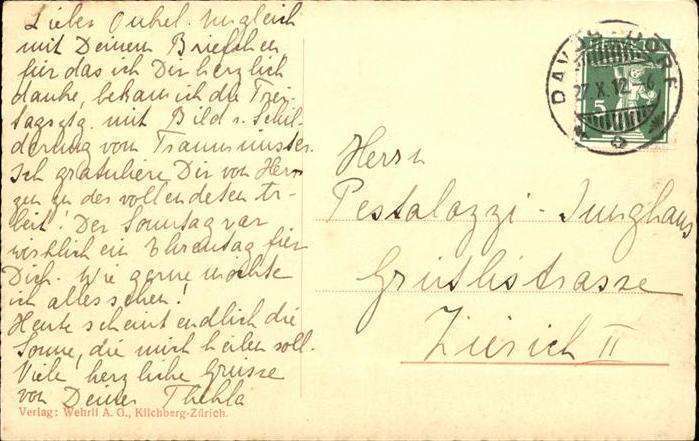 Liebes Onkel. Zugleich
mit Deinem Briefchen
für das ich Dir herzlich
danke, bekam ich die Frei-
tagsztg. mit Bild u. Schil-
derung vom Fraumünster.
Ich gratuliere Dir von Her-
zen zu des vollendeten Ar-
beit! Der Sonntag war
wirklich ein Ehrentag für
Dich. Wie gerne möchte
ich alles sehen!
Heute scheint endlich die
Sonne, die mich heilen soll.
Viele herzliche Grüsse
von Deiner Thekla
Verlag: Wehrli A. G., Kilchberg-Zürich.
DAVOS-DORF
27. X. 12.
5
Herrn
Pestalozzi-Junghaus
Grütlistrasse
Zürich II